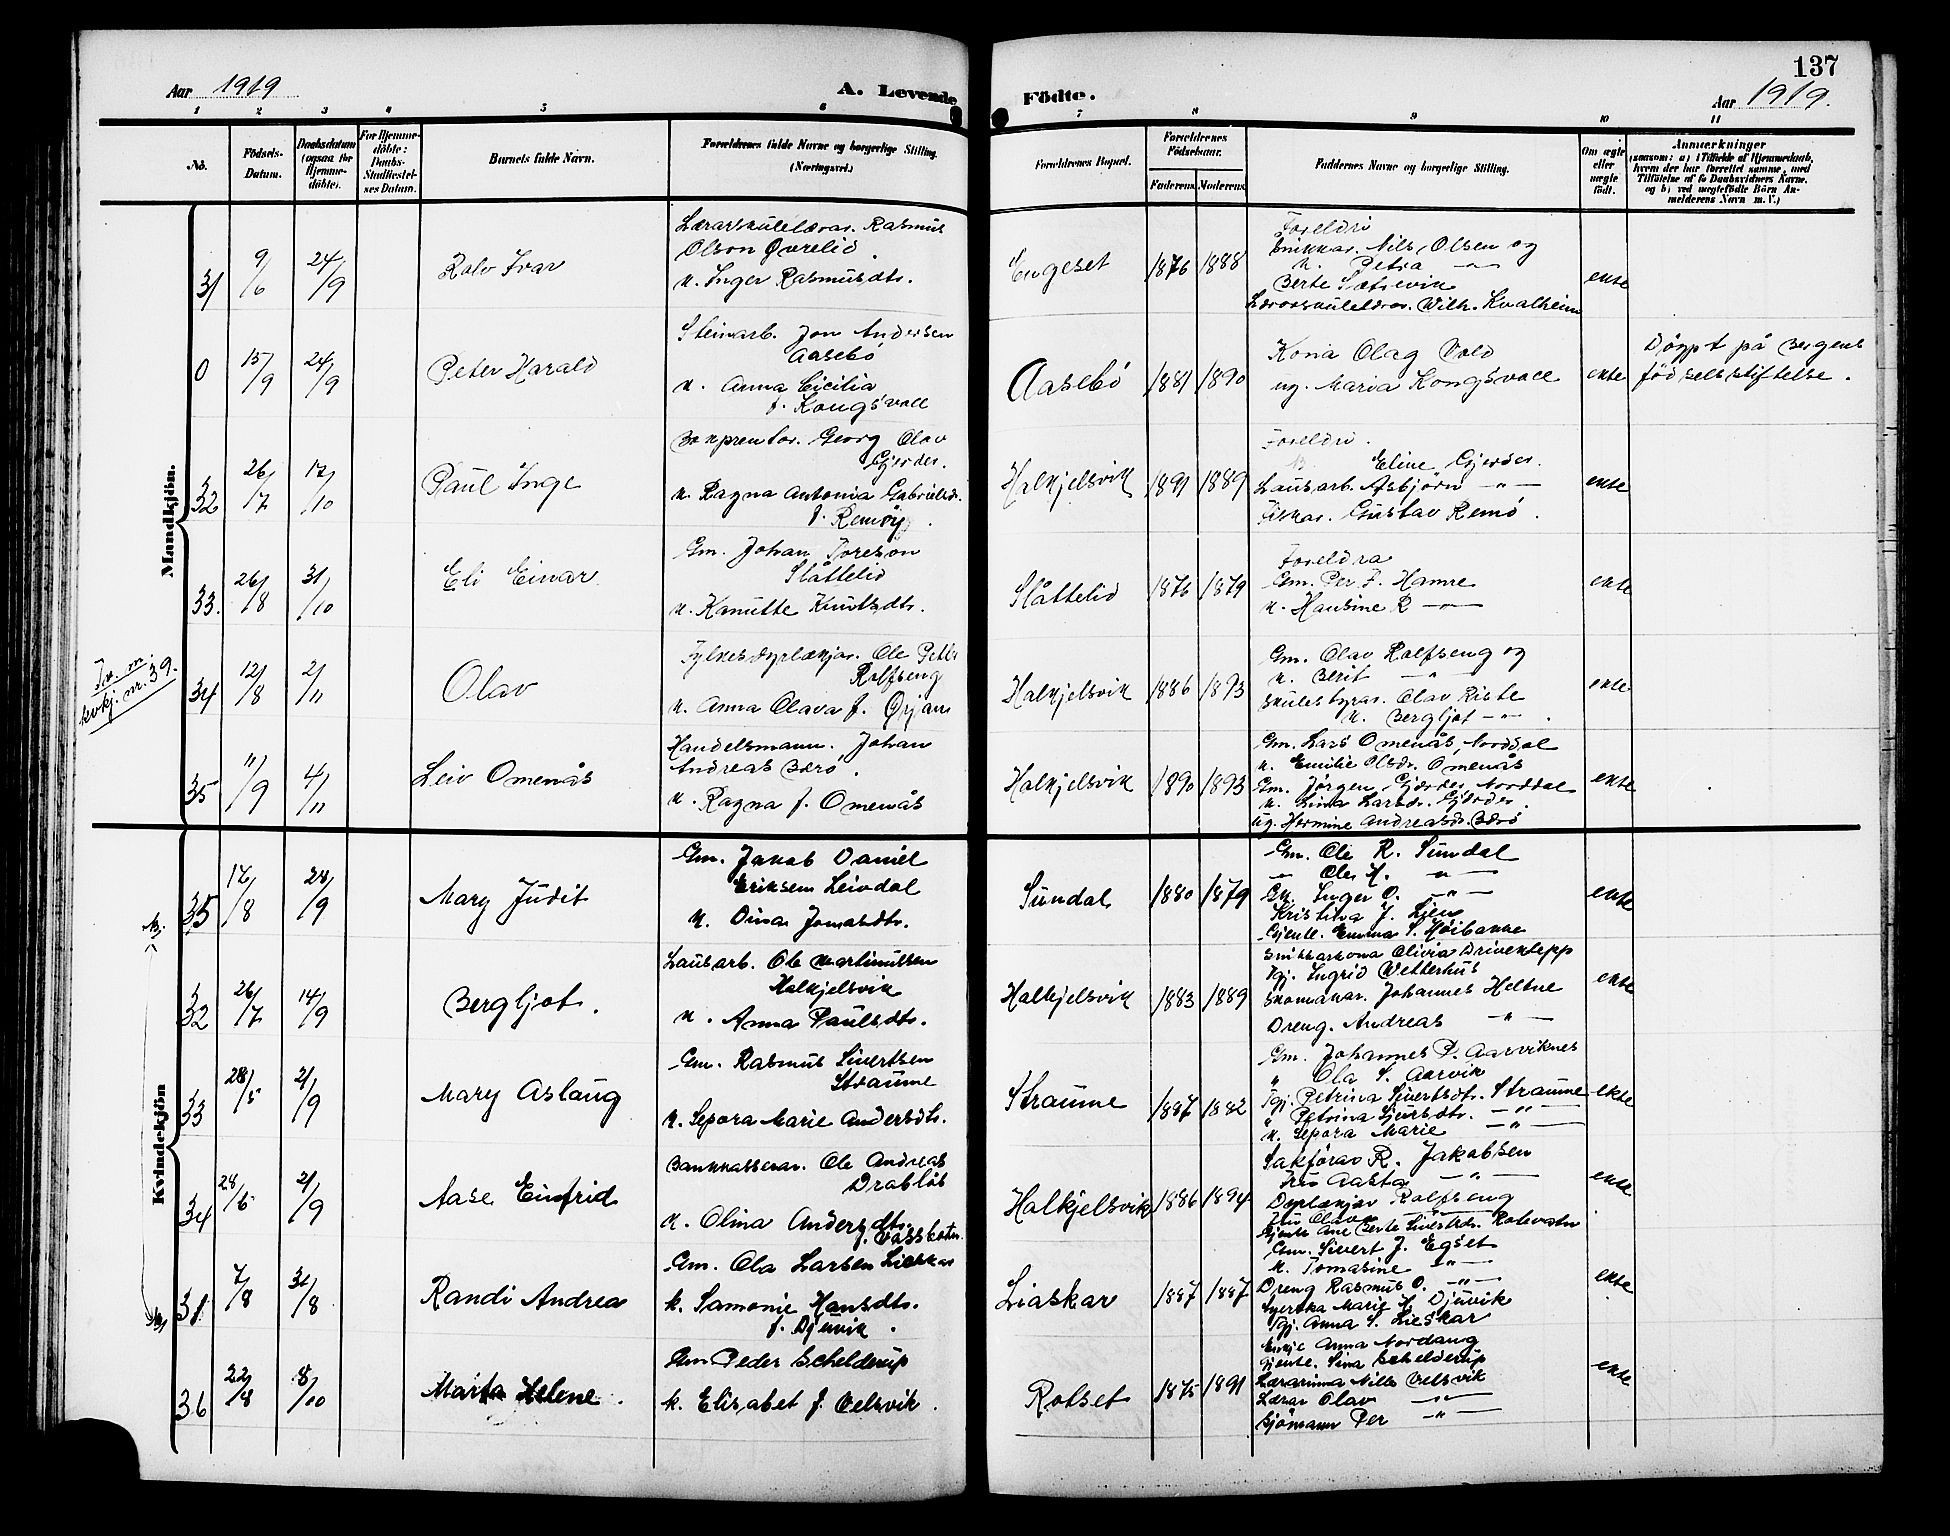 137
Aar 1919
A. Levende Födte.
Aar 1919.
1 2 3 4 5 6 7 8 9 10 11
No.
Födsels-Datum.
Daabsdatum (ogsaa for Hjemmedöbte).
For Hjemmedöbte: Daabs-Stadfæstelses Datum.
Barnets fulde Navn.
Forældrenes fulde Navne og borgerlige Stilling. (Næringsvei.)
Forældrenes Bopæl.
Forældrenes Födselsaar.
Faderens Moderens
Faddernes Navne og borgerlige Stilling.
Om ægte eller uægte födt.
Anmærkninger
(saasom: a) i Tilfælde af Hjemmedaab,
hvem der har forrettet samme, med
Tilföielse af to Daabsvidners Navne,
og b) ved uægtefödte Börn An-
melderens Navn m. V.)
Mandkjön.
31 9/6 24/9 Rolv Ivar
Lærarskulelærar. Rasmus
Olson Øvrelid.
k. Inger Rasmusdtr.
Engeset 1876 1888
Foreldri
Snikkar. Nils Olsen og
k. Petra —"—
Berte Sætrevik
Lærarskulelærar. Wilh. Kvalheim
ekte
0 15/9 24/9 Peter Harald
Steinarb. Jon Andersen
Aasebö
k. Anna Cicilia
f. Kongsvoll
Aasebö 1881 1890
Kona Olag Vold
ug. Maria Kongsvoll
ekte
Döypt på Bergens
födselsstiftelse.
32 26/7 12/10 Paul Inge
Bokprentar. Georg Olav
Gjerder.
k. Ragna Antonia Gabrielsd.
f. Remöy.
Halkjelsvik 1891 1889
Foreldri.
Eline Gjerder.
Lausarb. Asbjörn —"—
Fiskar. Gustav Remö.
ekte
33. 26/8 31/10 Eli Einar
Gm. Johan Toreson
Slåttelid
k. Kanutte Knutsdtr.
Slåttelid 1876 1879
Foreldra
Gm. Per F. Hamre
k. Hansine R —"—
ekte
Tv. m.
kvkj. nr. 39.
34 12/8 2/11 Olav
Fylkesdyrlækjar. Ole Peter
Rolfseng
k. Anna Olava f. Ørjan
Halkjelsvik 1886 1893
Gm. Olav Rolfseng og
k. Berit —"—
Skulestyrar. Olav Riste
k. Bergljot —"—.
ekte
35 11/9 4/11 Leiv Omenås
Handelsmann. Johan
Andreas Berö.
k. Ragna f. Omenås
Halkjelsvik 1890 1893
Gm. Lars Omenås, Norddal
k. Emilie Olsdr. Omenås
Gm. Jörgen Gjerder Norddal
k. Lina Larsdr. Gjerder.
ug. Hermine Andreasdr. Berö
ekte
Kvindekjön
35 17/8 28/9 Mary Judit
Gm. Jakob Daniel
Eriksen Leivdal
k. Oina Jonasdtr.
Sundal 1880 1879
Gm. Ole R. Sundal
" Ole H. —"—
Gk. Inger O. —"—
Kristina J. Lien
Gjente. Emma S. Höibakke
ekte
32 26/7 14/9 Bergljot.
Lausarb. Ole Martinussen
Halkjelsvik
k. Anna Paulsdtr.
Halkjelsvik 1883 1889
Snikkarkona Olivia Driveklepp
Tgj. Ingrid Vetterhus
Skomakar. Johannes Heltne
Dreng. Andreas —"—
ekte
33 28/5 21/9 Mary Aslaug
Gm. Rasmus Sivertsen
Straume
k. Sepora Marie Andersdtr.
Straume 1887 1882
Gm. Johannes P. Aarviknes
" Ola S. Aarvik
Tgj. Petrina Sjvertsdtr. Straume
" Petrina Sjursdtr. —"—
k. Sepora Marie —"—
ekte
34 28/6 21/9 Aase Einfrid
Bankkasserar. Ole Andreas
Drabløs
k. Olina Andersdtr.
f. Vassbotn.
Halkjelsvik 1886 1894
Sakförar R. Jakobsen
Fru Aasta —"—
Dyrlækjar Rolfseng
Fru Olava
Gjente Ane Berte Sivertsdr. Rotevatn
ekte
31 7/8 31/8 Randi Andrea
Gm. Ola Larsen Lieskar
k. Samonie Hansdtr.
f. Djuvik.
Liaskar 1887 1887
Gm. Sivert J. Egset
k. Tomasine —"—
Dreng Rasmus O. —"—
Syerska Marie H. Djuvik
Tgj. Anna S. Lieskar
ekte
36 22/8 8/10 Marta Helene.
Gm Peder Schelderup
k. Elisabet f. Velsvik.
Rotset 1875 1891
Enkje Anna Nordang
Gjente. Sina Schelderup
Lærarinna Nille Velsvik
Lærar Olav —"—
Sjömann Per —"—
ekte